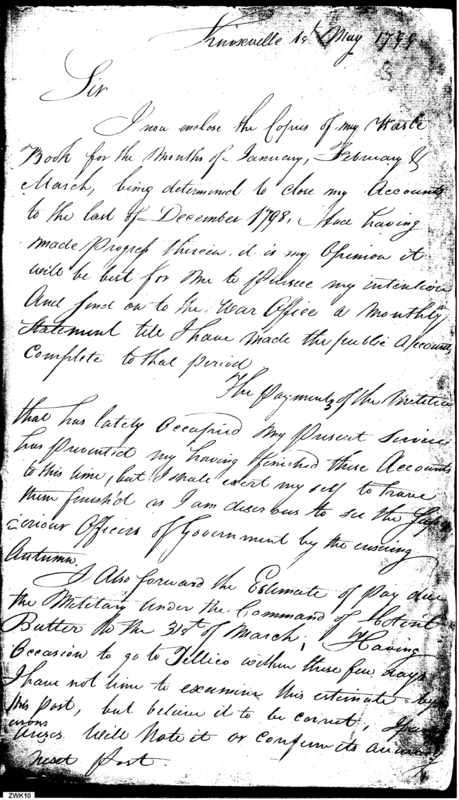 Knoxville 1st May 1799
Sir
I now enclose the Copies of my Waste
Book for the Months of January, February &
March, being determined to close my Accounts
to the last of December 1798, And having
made Progress therein, it is my Opinion it
will be best for me to pursue my intention
And send on to the War Office a Monthly
Statement till I have made the public Accounts
Complete to that period
The Payments of the Militia
that has lately Occupied my Present Service
has prevented my having finished these Accounts
to this time, but I shall exert my self to have
them finish'd as I am desirous to see the
Officers of Government by the ensuing
Autumn.
I Also forward the Estimate of Pay due
the Military under the Command of
Butler to the 31st of March, Having
Occasion to go to Tellico within these few days
I have not time to examine this estimate by
this Post, but believe it to be correct,
errors
arises will Note it or Confirm its
next Post
ZWK10